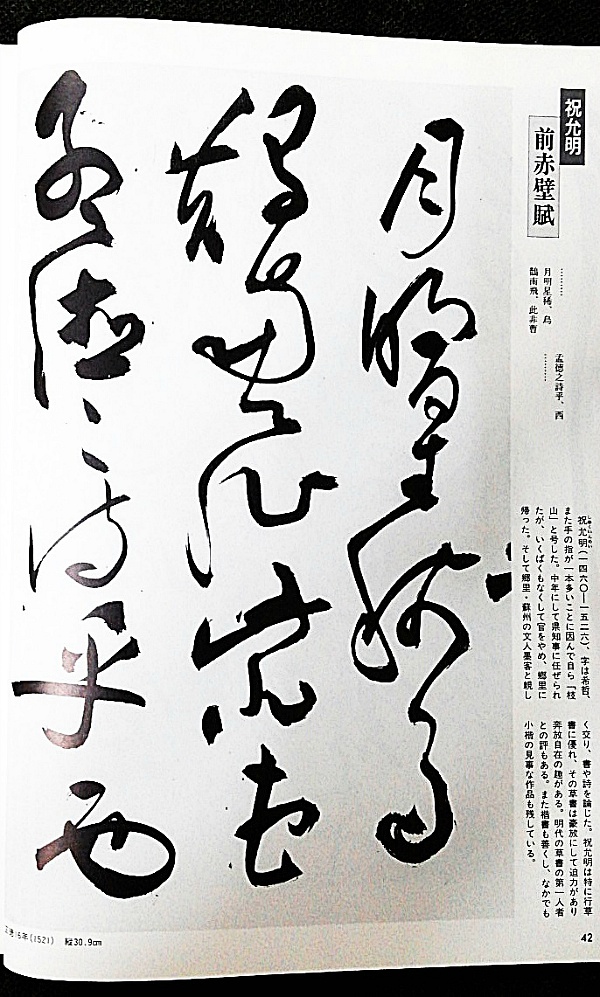 祝允明
前赤壁賦
………
月明星稀、烏
鵲南飛、此非曹
孟德之詩乎、西
………
祝允明(一四六〇―一五二六)、字は希哲、
また手の指が一本多いことに因んで自ら「枝
山」と号した。中年にして県知事に任ぜられ
たが、いくばくもなくして官をやめ、郷里に
帰った。そして郷里・蘇州の文人墨客と親し
く交り、書や詩を論じた。祝允明は特に行草
書に優れ、その草書は豪放にして迫力があり
奔放自在の趣がある。明代の草書の第一人者
との評もある。また楷書も善くし、なかでも
小楷の見事な作品も残している。
月明星稀烏
鵲南飛此非曹
孟德之詩乎西
16年(1521) 縦30.9cm
42